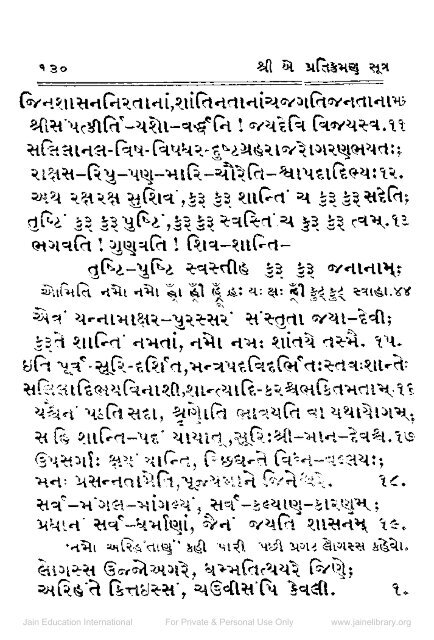 ૧૩૦ શ્રી બે પ્રતિક્રમણ સૂત્ર
જિનશાસનનિરતાનાં,શાંતિનતાનાંચજગતિજનતાનામ્
શ્રીસંપત્કીર્તિ-યશો-વર્દ્ધનિ ! જયદેવિ વિજયસ્વ.૧૧
સલિલાનલ-વિષ-વિષધર-દુષ્ટગ્રહરાજરોગરણભયતઃ;
રાક્ષસ-રિપુ-પણ-મારિ-ચૌરેતિ-શ્વાપદાદિભ્યઃ૧૨.
અથ રક્ષરક્ષ સુશિવં,કુરૂ કુરૂ શાન્તિં ચ કુરૂ કુરૂસદેતિ;
તુષ્ટિં કુરૂ કુરૂપુષ્ટિં,કુરૂ કુરૂ સ્વસ્તિં ચ કુરૂ કુરૂ ત્વમ્.૧૩
ભગવતિ ! ગુણવતિ ! શિવ-શાન્તિ-
તુષ્ટિ-પુષ્ટિ સ્વસ્તીહ કુરૂ કુરૂ જનાનામ્;
ઓમિતિ નમો નમો હ્રાઁ હ્રીઁ હ્રૂઁ હ્રઃ યઃ ક્ષઃ હ્રીઁ ફુટ્ ફુટ્ સ્વાહા.૧૪
એવં યન્નામાક્ષર-પુરસ્સરં સંસ્તુતા જયા-દેવી;
કુરૂતે શાન્તિં નમતાં, નમો નમઃ શાંતયે તસ્મૈ. ૧૫.
ઇતિ પૂર્વ-સૂરિ-દર્શિત,મન્ત્રપદવિદર્ભિતઃસ્તવઃશાન્તેઃ
સલિલાદિભયવિનાશી,શાન્ત્યાદિ-કરશ્ચભક્તિમતામ્.૧૬
યશ્ચૈનં પઠતિસદા, શ્રૃણોતિ ભાવયતિ વા યથાયોગમ્;
સ હિ શાન્તિ-પદં યાયાત્,સૂરિઃશ્રી-માન-દેવશ્ચ.૧૭
ઉપસર્ગાઃ ક્ષયં યાન્તિ, ચ્છિદ્યન્તે વિઘ્ન-વલ્લયઃ;
મનઃ પ્રસન્નતામેતિ,પૂજ્યમાને જિનેશ્વરે. ૧૮.
સર્વ-મંગલ-માંગલ્યં, સર્વ-કલ્યાણ-કારણમ્ ;
પ્રધાનં સર્વ-ધર્માણાં, જૈનં જયતિ શાસનમ્ ૧૯.
'નમો અરિહંતાણં' કહી પારી પછી પ્રગટ લોગસ્સ કહેવો.
લોગસ્સ ઉજ્જોઅગરે, ધમ્મતિત્થયરે જિણે;
અરિહંતે કિત્તઇસ્સં, ચઉવીસંપિ કેવલી. ૧.
Jain Education International For Private & Personal Use Only www.jainelibrary.org